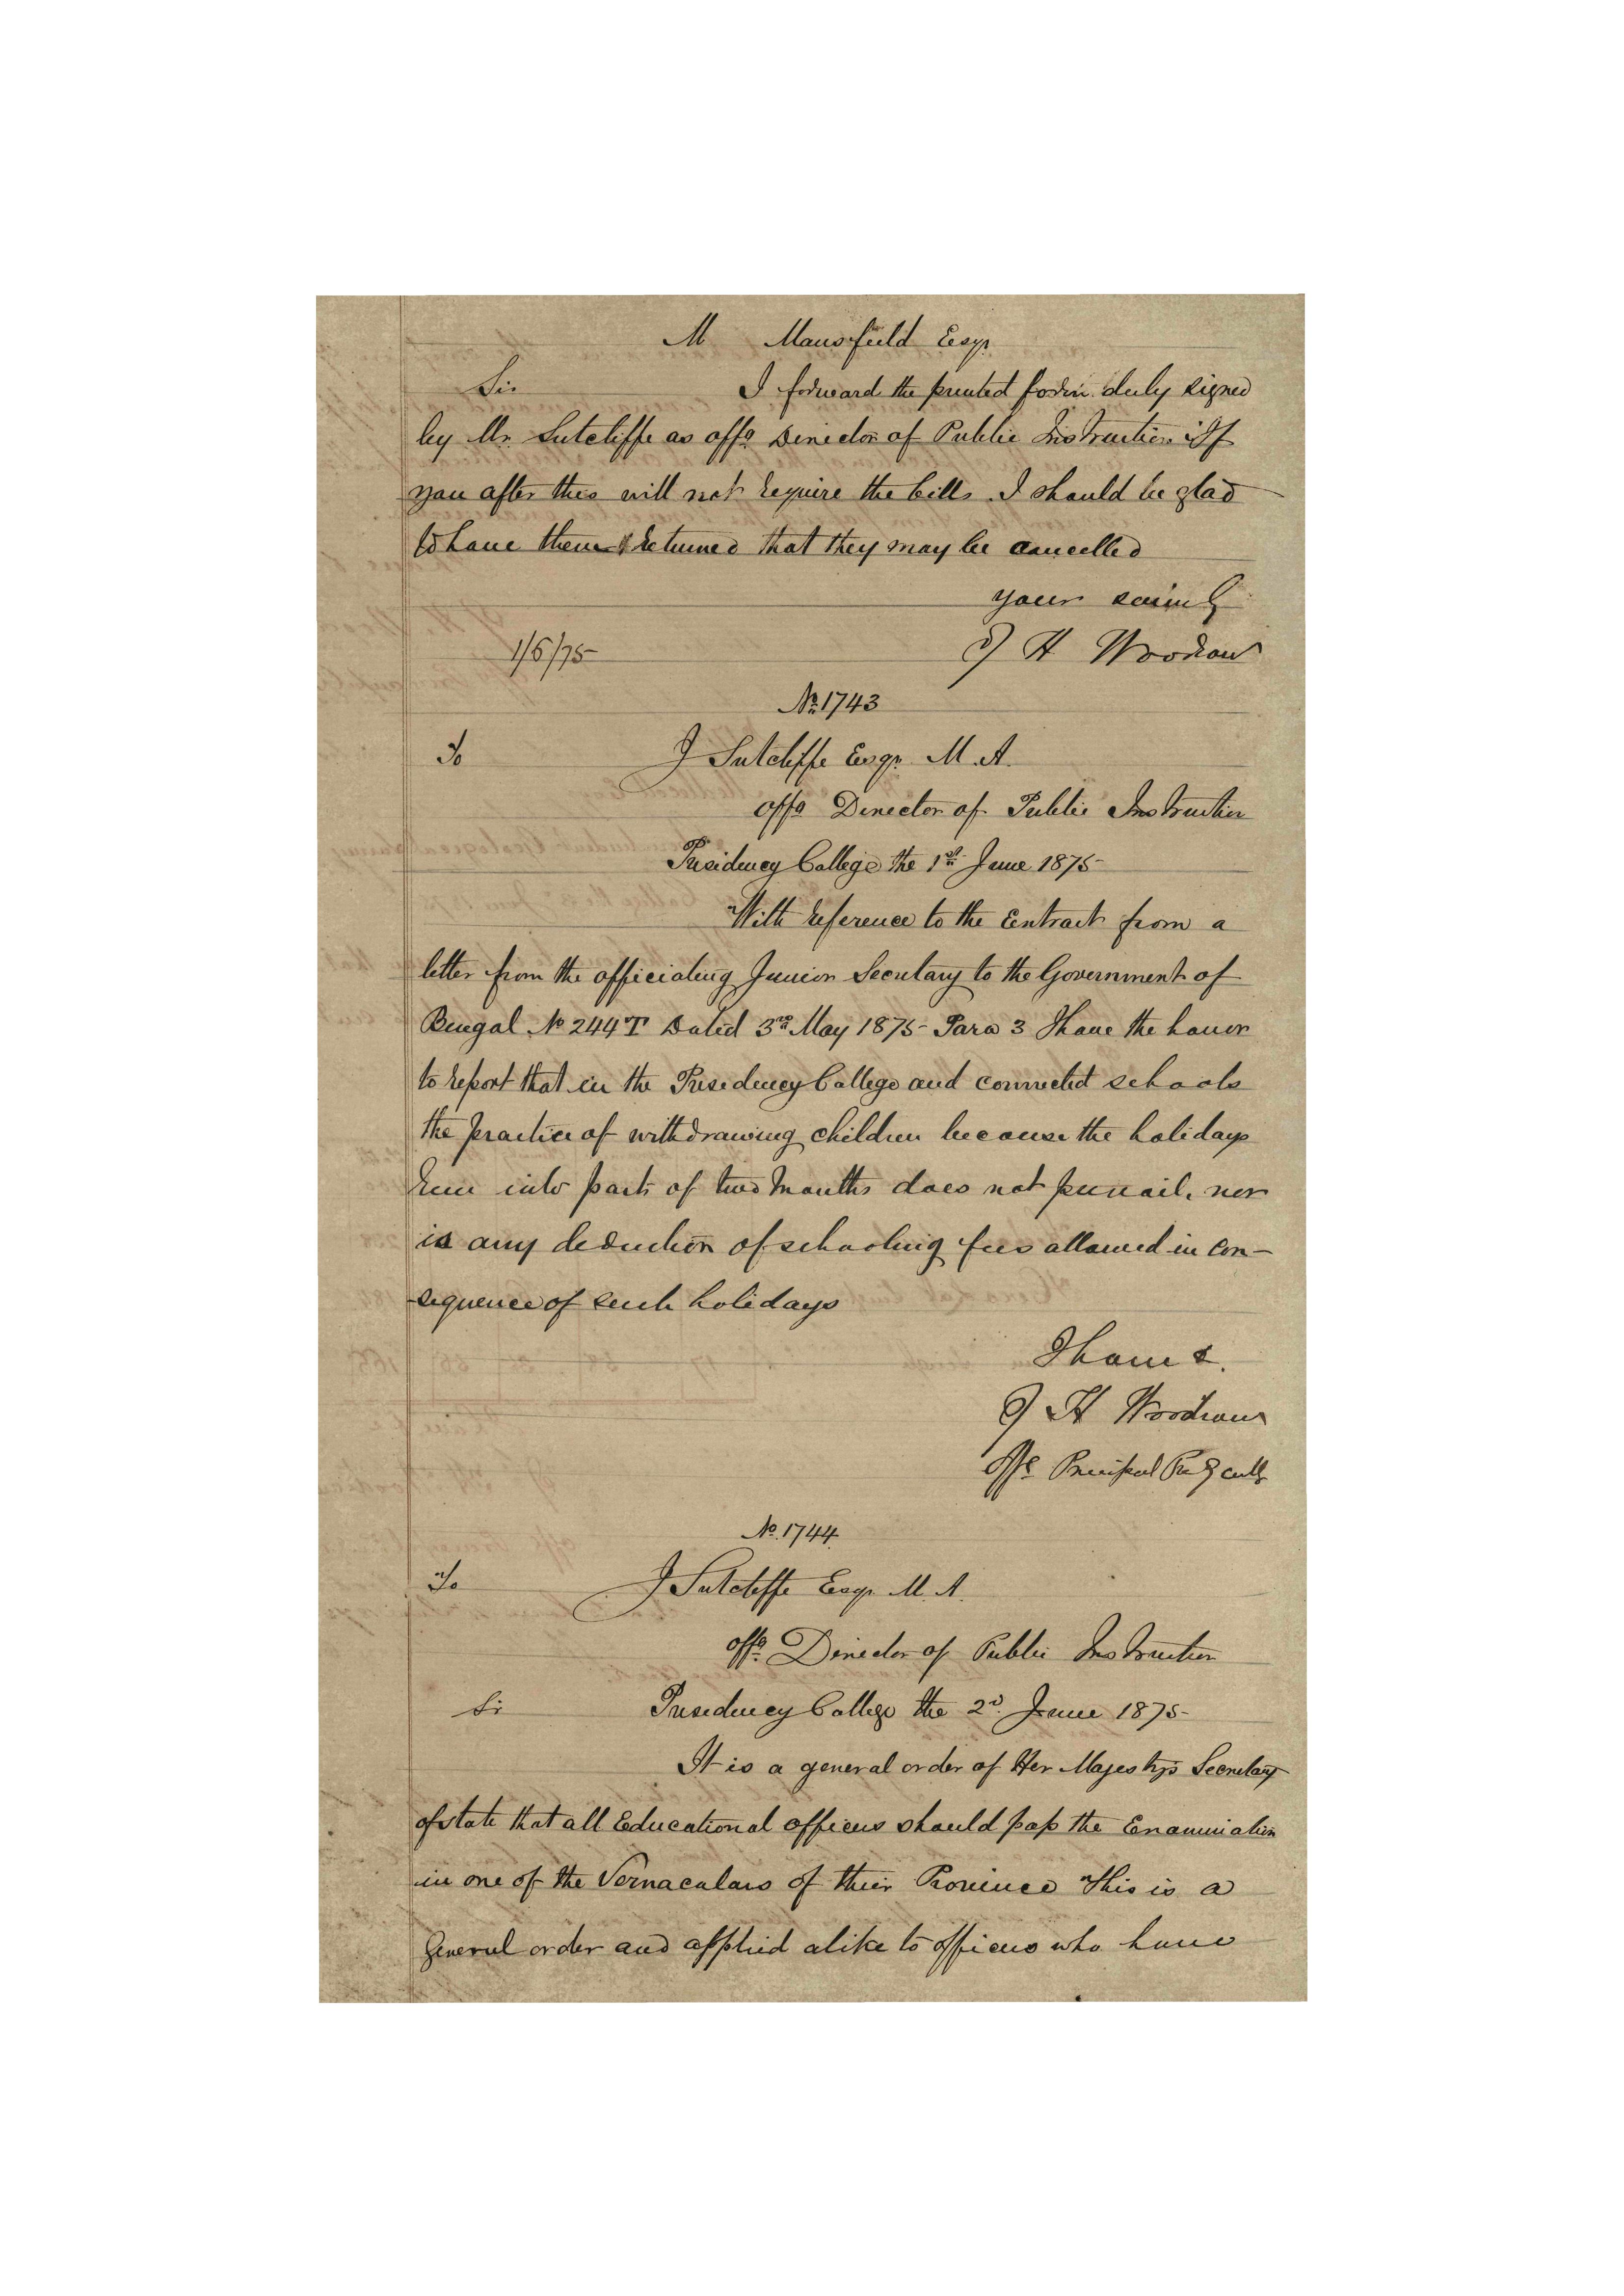 M Mansfield Esqr
Sir I forward the printed form duly signed
by Mr. Sutcliffe as offg Director of Public Instruction if
you after this will not require the bills I should be glad
to have them returned that they may be cancelled
your
1/6/75 H Woodrow
No. 1743
To J Sutcliffe Esqr. M.A.
offg Director of Public Instruction
Presidency College the 1st June 1875
With reference to the Extract from a
letter from the officiating Junior Secretary to the Government of
Bengal No 244T Dated 3rd May 1875 Para 3 I have the honor
to report that in the Presidency College and connected schools
the practice of withdrawing children because the holidays
run into parts of two months does not prevail, nor
is any deduction of schooling fees allowed in con-
sequence of such holidays
I have &.
H Woodrow
Offg Principal
No. 1744
To J Sutcliffe Esqr. M.A.
offg. Director of Public Instruction
Sir Presidency College the 2d. June 1875
It is a general order of Her Majestys Secretary
of state that all Educational officers should pass the Examination
in one of the Vernaculars of their Province This is a
General order and applied alike to officers who have